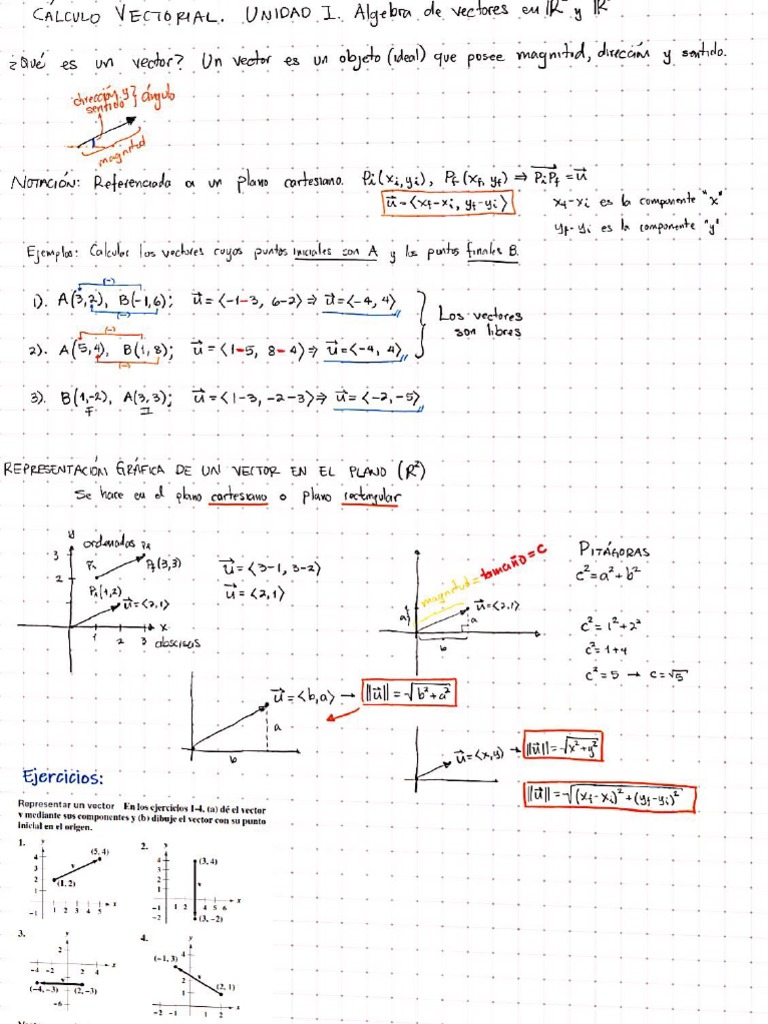 CÁLCULO VECTORIAL. UNIDAD I. Álgebra de vectores en ℝ² y ℝ
¿Qué es un vector? Un vector es un objeto (ideal) que posee magnitud, dirección y sentido.
dirección y } ángulo
sentido
magnitud
NOTACIÓN: Referenciada a un plano cartesiano. Pi(xi,yi), Pf(xf,yf) ⇒ PiPf = u
u = <xf-xi, yf-yi>
xf-xi es la componente "x"
yf-yi es la componente "y"
Ejemplos: Calcular los vectores cuyos puntos iniciales son A y los puntos finales B.
(-)
1). A(3,2), B(-1,6); u = <-1-3, 6-2> ⇒ u = <-4, 4>
(-)
Los vectores
son libres
(-)
2). A(5,4), B(1,8); u = <1-5, 8-4> ⇒ u = <-4, 4>
(-)
3). B(1,-2), A(3,3); u = <1-3, -2-3> ⇒ u = <-2,-5>
F I
REPRESENTACIÓN GRÁFICA DE UN VECTOR EN EL PLANO (R²)
Se hace en el plano cartesiano o plano rectangular
y
ordenadas
3
2
Pf(3,3)
P(1,2)
u = <2,1>
1 2 3 x
abscisas
u = <3-1, 3-2>
u = <2,1>
magnitud = tamaño = c
a
u = <2,1>
a
b
PITÁGORAS
c² = a² + b²
c² = 1² + 2²
c² = 1+4
c² = 5 → c = √5
u = <b,a> → ||u|| = √b² + a²
a
b
u = <x,y> → ||u|| = √x² + y²
||u|| = √(xf-xi)² + (yf-yi)²
Ejercicios:
Representar un vector En los ejercicios 1-4, (a) dé el vector
v mediante sus componentes y (b) dibuje el vector con su punto
inicial en el origen.
1.
y
4
3
2
1
−1
1 2 3 4 5
x
(5, 4)
(1, 2)
v
2.
y
4
3
2
1
−1
−2
−1 1 2 4 5 6
x
(3, 4)
v
(3, −2)
3.
y
2
−4 −2 2 4
x
(−4, −3)
v
(2, −3)
−6
4.
y
4
2
1
(−1, 3)
v
(2, 1)
−2 −1 1 2
x